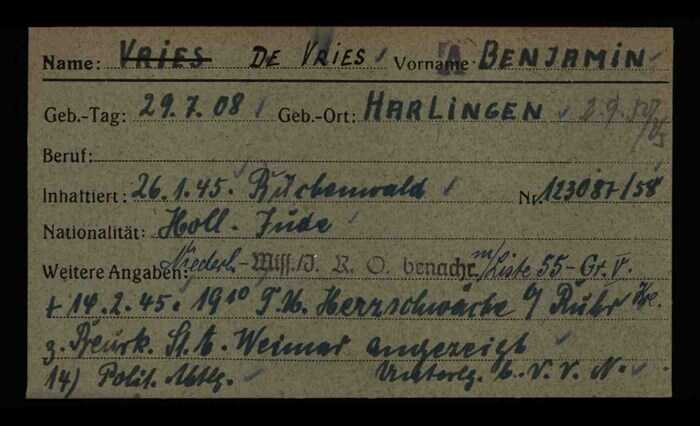 Name: VRIES DE VRIES Vorname BENJAMIN
Geb.-Tag: 29.7.08 Geb.-Ort: HARLINGEN
Beruf:
Inhaftiert: 26.1.45. Buchenwald Nr. 123087/58
Nationalität: Holl. Jude
Weitere Angaben: Niederl.- Miss./I. R. O. benachr. m/Liste 55-Gr. V.
+ 14.2.45. 19¹⁰ T. U. Herzschwäche b/ Ruhr
z. Beurk. St. A. Weimar angezeigt
14) Polit. Abtlg. Unterlg. b. V. V. N.